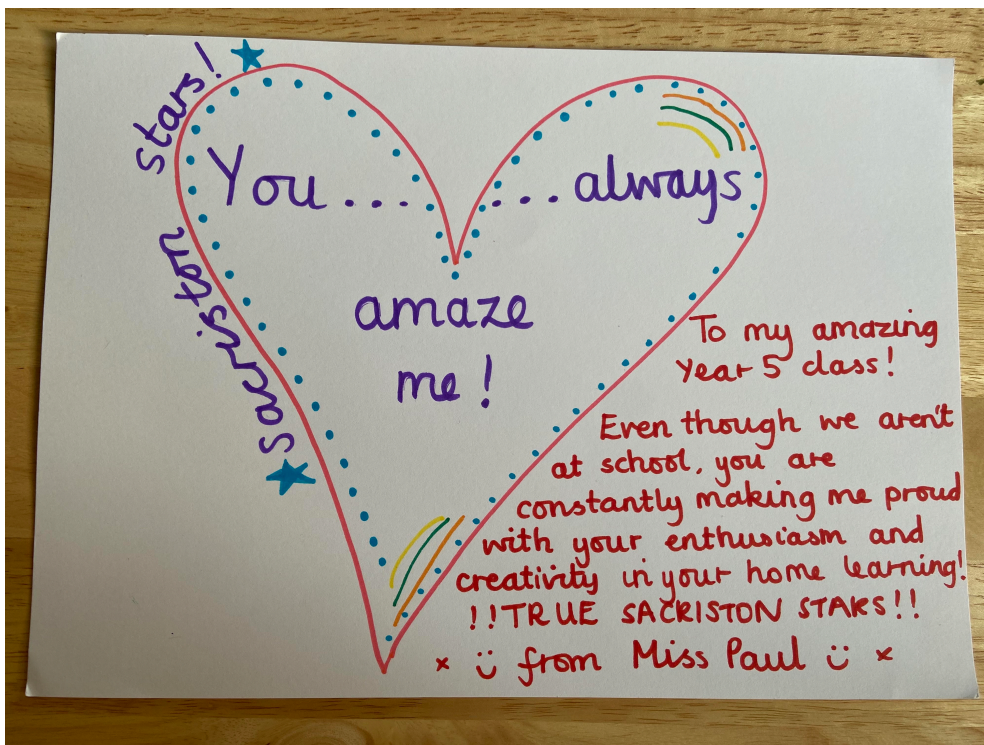 sacriston stars!
You... ...always
amaze
me!
To my amazing
Year 5 class!
Even though we aren't
at school, you are
constantly making me proud
with your enthusiasm and
creativity in your home learning!
!!TRUE SACRISTON STARS!!
x ü from Miss Paul ü x